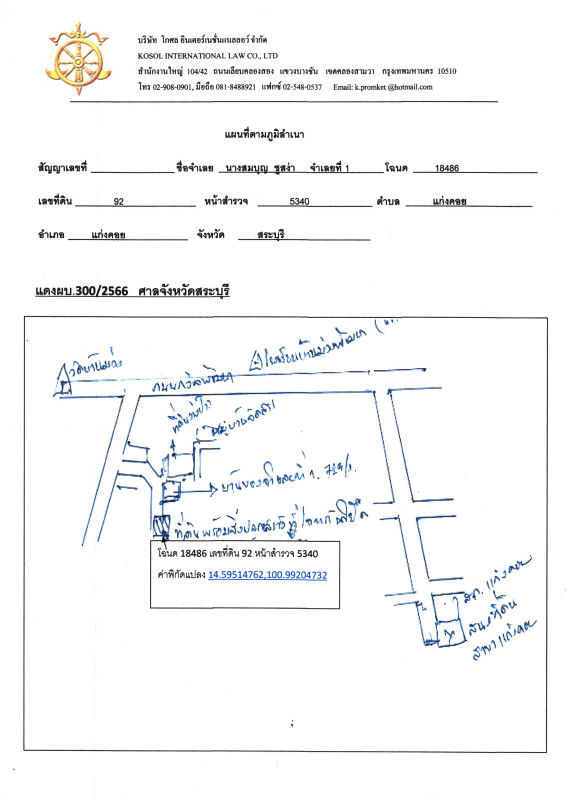 บริษัท โกศล อินเตอร์เนชั่นแนลลอว์ จำกัด
KOSOL INTERNATIONAL LAW CO., LTD
สำนักงานใหญ่ 104/42 ถนนเลียบคลองสอง แขวงบางชัน เขตคลองสามวา กรุงเทพมหานคร 10510
โทร 02-908-0901, มือถือ 081-8488921 แฟกซ์ 02-548-0537 Email: k.promket @hotmail.com
แผนที่ตามภูมิลำเนา
สัญญาเลขที่ ชื่อจำเลย นางสมบุญ ชูสง่า จำเลยที่ 1 โฉนด 18486
เลขที่ดิน 92 หน้าสำรวจ 5340 ตำบล แก่งคอย
อำเภอ แก่งคอย จังหวัด สระบุรี
แดงผบ.300/2566 ศาลจังหวัดสระบุรี
วัดบ้านม่วง
ที่ดินว่างเปล่า
หมู่บ้านจัดสรร
บ้านของจำเลยที่ 1.
ที่ดินพร้อมสิ่งปลูกสร้าง
โฉนด 18486 เลขที่ดิน 92 หน้าสำรวจ 5340
ค่าพิกัดแปลง 14.59514762,100.99204732
สภ. แก่งคอย
สนง ที่ดิน
สาขาแก่งคอย